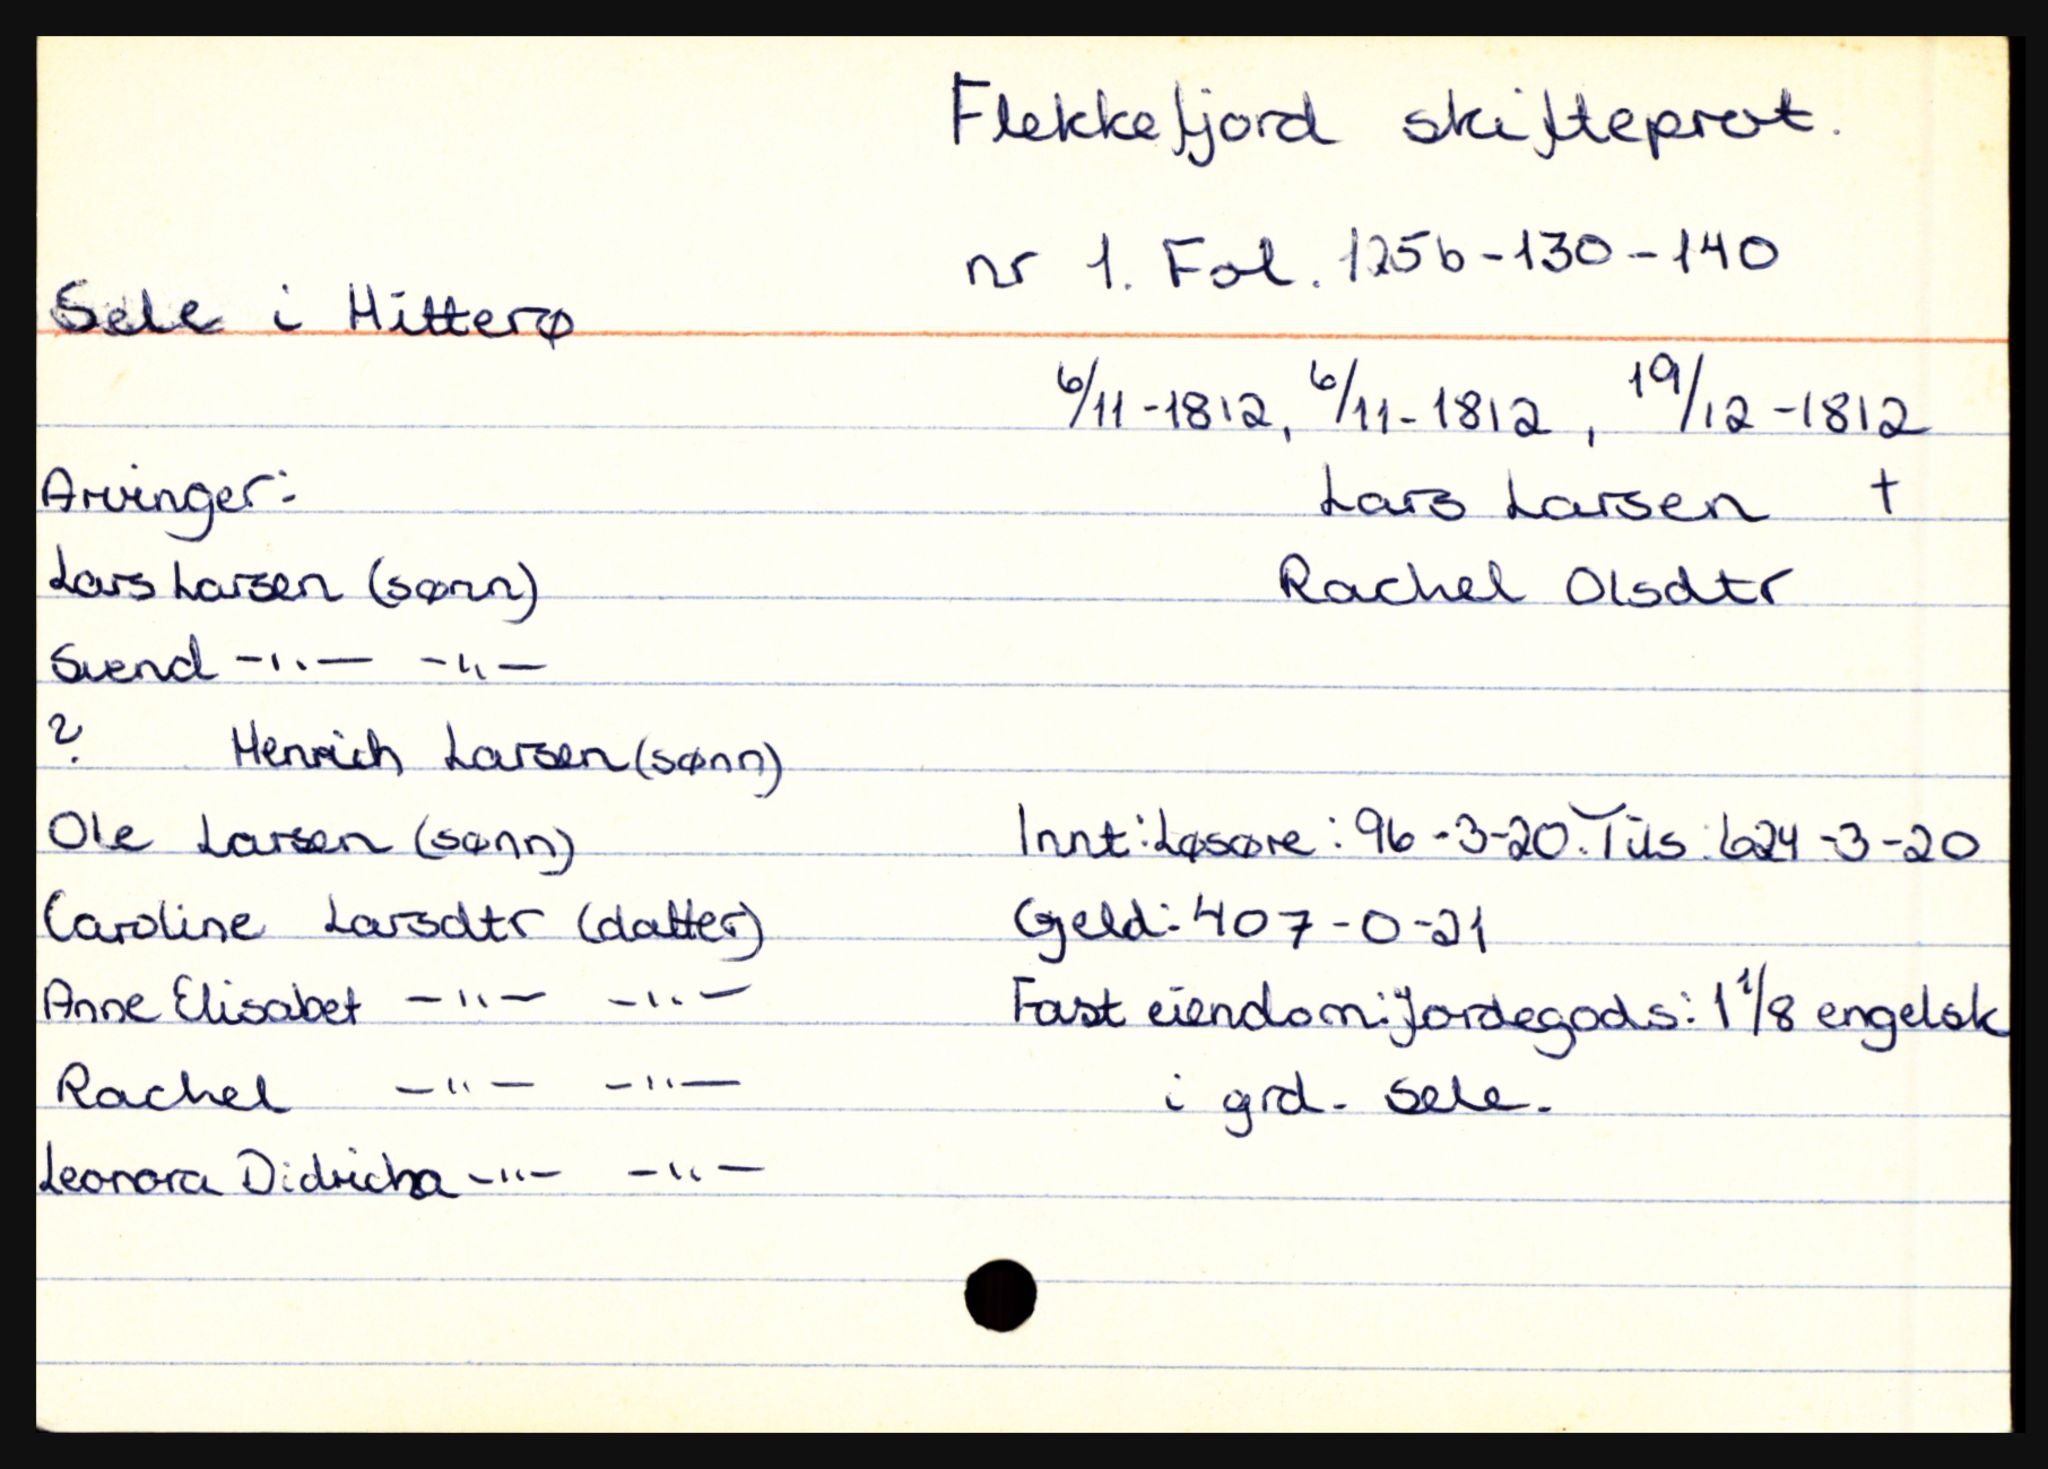 Flekkefjord skifteprot.
nr 1. Fol. 125b-130-140
Sele i Hitterø
6/11-1812, 6/11-1812, 19/12-1812
Arvinger:
Lars Larsen †
Lars Larsen (sønn)
Rachel Olsdtr
Svend -"- -"-
? Henrich Larsen (sønn)
Ole Larsen (sønn)
Innt: Løsøre: 96-3-20. Tils: 624-3-20
Caroline Larsdtr (datter)
Gjeld: 407-0-21
Anne Elisabet -"- -"-
Fast eiendom: Jordegods: 1 1/8 engelsk
Rachel -"- -"-
i grd. Sele.
Leonora Didricha -"- -"-